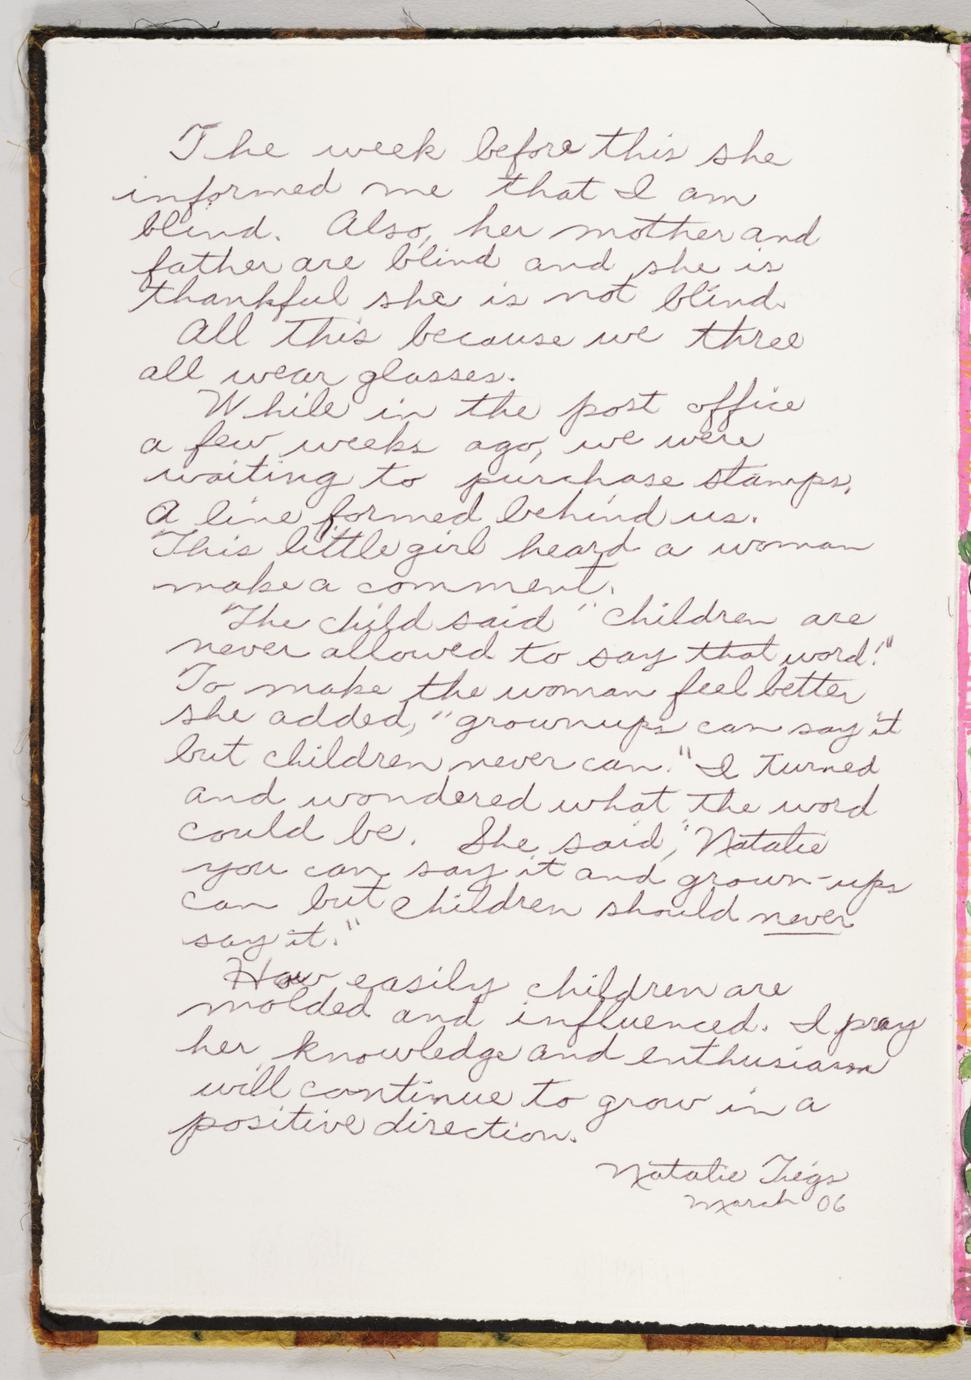 The week before this she
informed me that I am
blind. Also, her mother and
father are blind and she is
thankful she is not blind.
All this because we three
all wear glasses.
While in the post office
a few weeks ago, we were
waiting to purchase stamps.
A line formed behind us.
This little girl heard a woman
make a comment.
The child said "children are
never allowed to say that word!"
To make the woman feel better
she added, "grownups can say it
but children never can." I turned
and wondered what the word
could be. She said, "Natalie
you can say it and grown-ups
can but children should never
say it."
How easily children are
molded and influenced. I pray
her knowledge and enthusiasm
will continue to grow in a
positive direction.
Natalie Tiegs
March 06